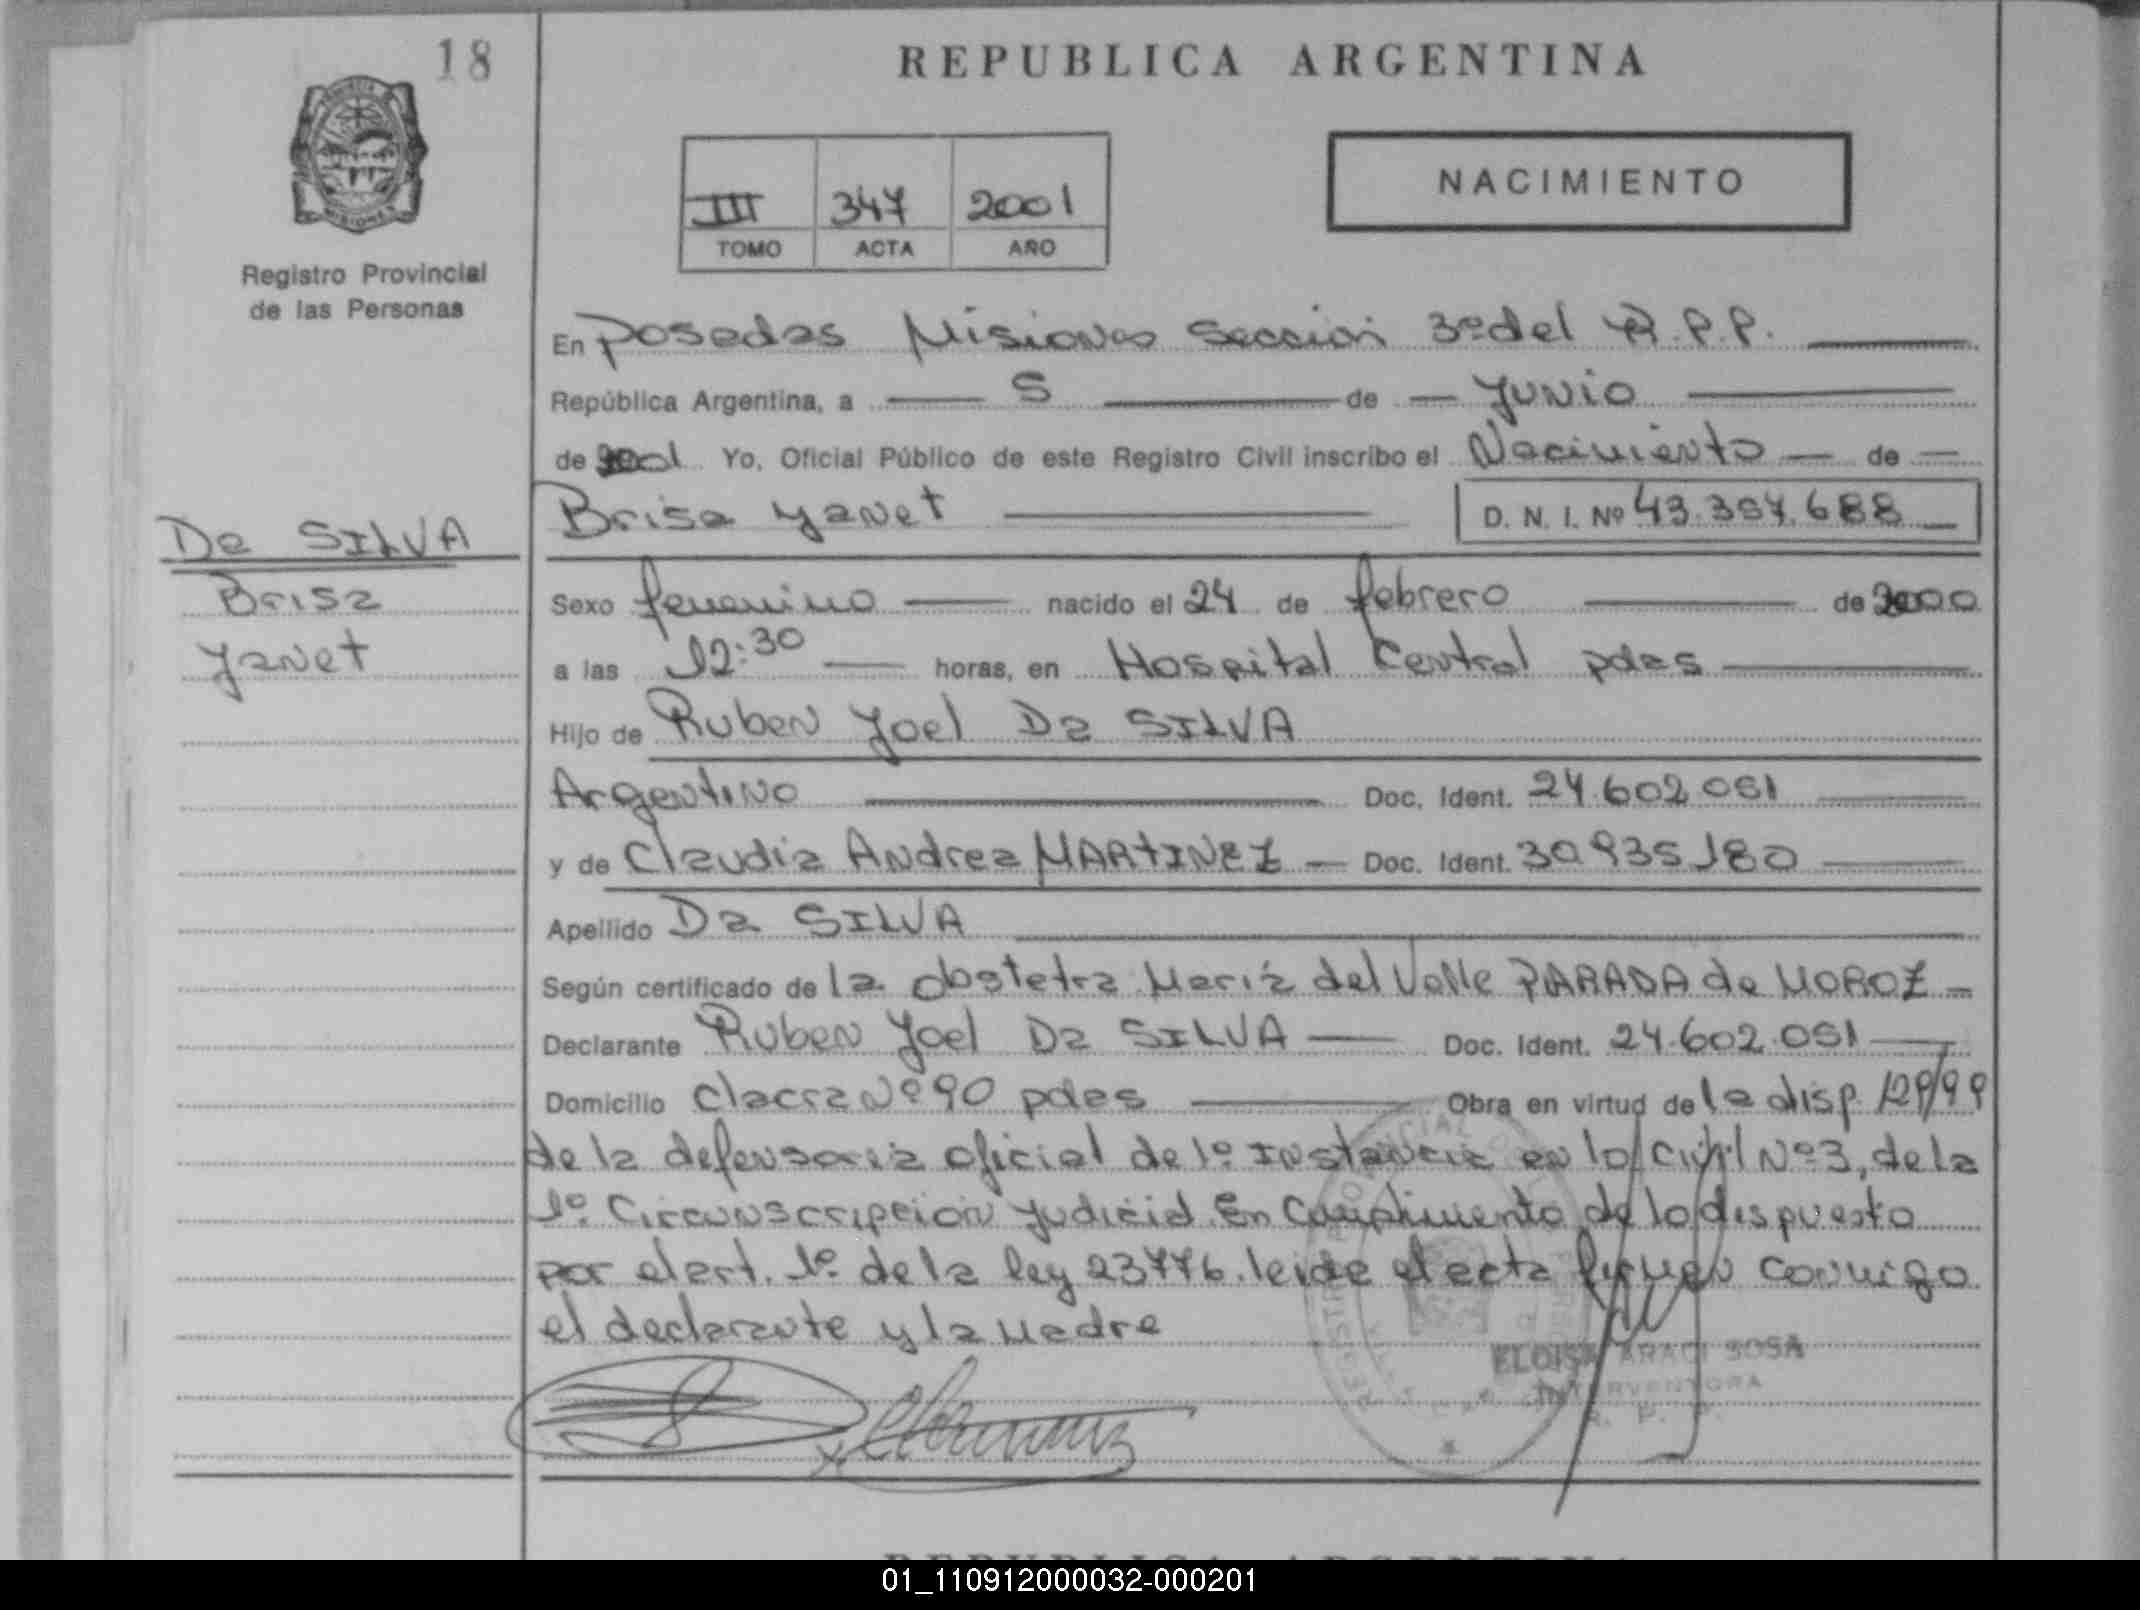 18
REPUBLICA ARGENTINA
Registro Provincial
de las Personas
III 347 2001
TOMO ACTA AÑO
NACIMIENTO
En Posadas Misiones Sección 3º del R.P.P.
República Argentina, a 5 de Junio
de 2001 Yo, Oficial Público de este Registro Civil inscribo el Nacimiento de
De SILVA
Brisa
Yanet
Brisa Yanet D. N. I. Nº 43.357.688
Sexo femenino nacido el 24 de febrero de 2000
a las 12:30 horas, en Hospital Central pdas
Hijo de Ruben Yoel Da SILVA
Argentino Doc. Ident. 24.602.051
y de Claudia Andrea MARTINEZ Doc. Ident. 30.935.180
Apellido Da SILVA
Según certificado de la obstetra Maria del Valle PARADA de MOROZ
Declarante Ruben Yoel Da SILVA Doc. Ident. 24.602.051
Domicilio Chacra Nº 90 pdas Obra en virtud de la disp. 129/99
de la defensoria oficial de 1º Instancia en lo Civil Nº 3, de la
1º Circunscripción Judicial. En Cumplimento de lo dispuesto
por el art. 1º de la ley 23776. leida el acta firman conmigo
el declarante y la madre
ELOISA ARACI SOSA
INTERVENTORA
R. P. P.
01_110912000032-000201